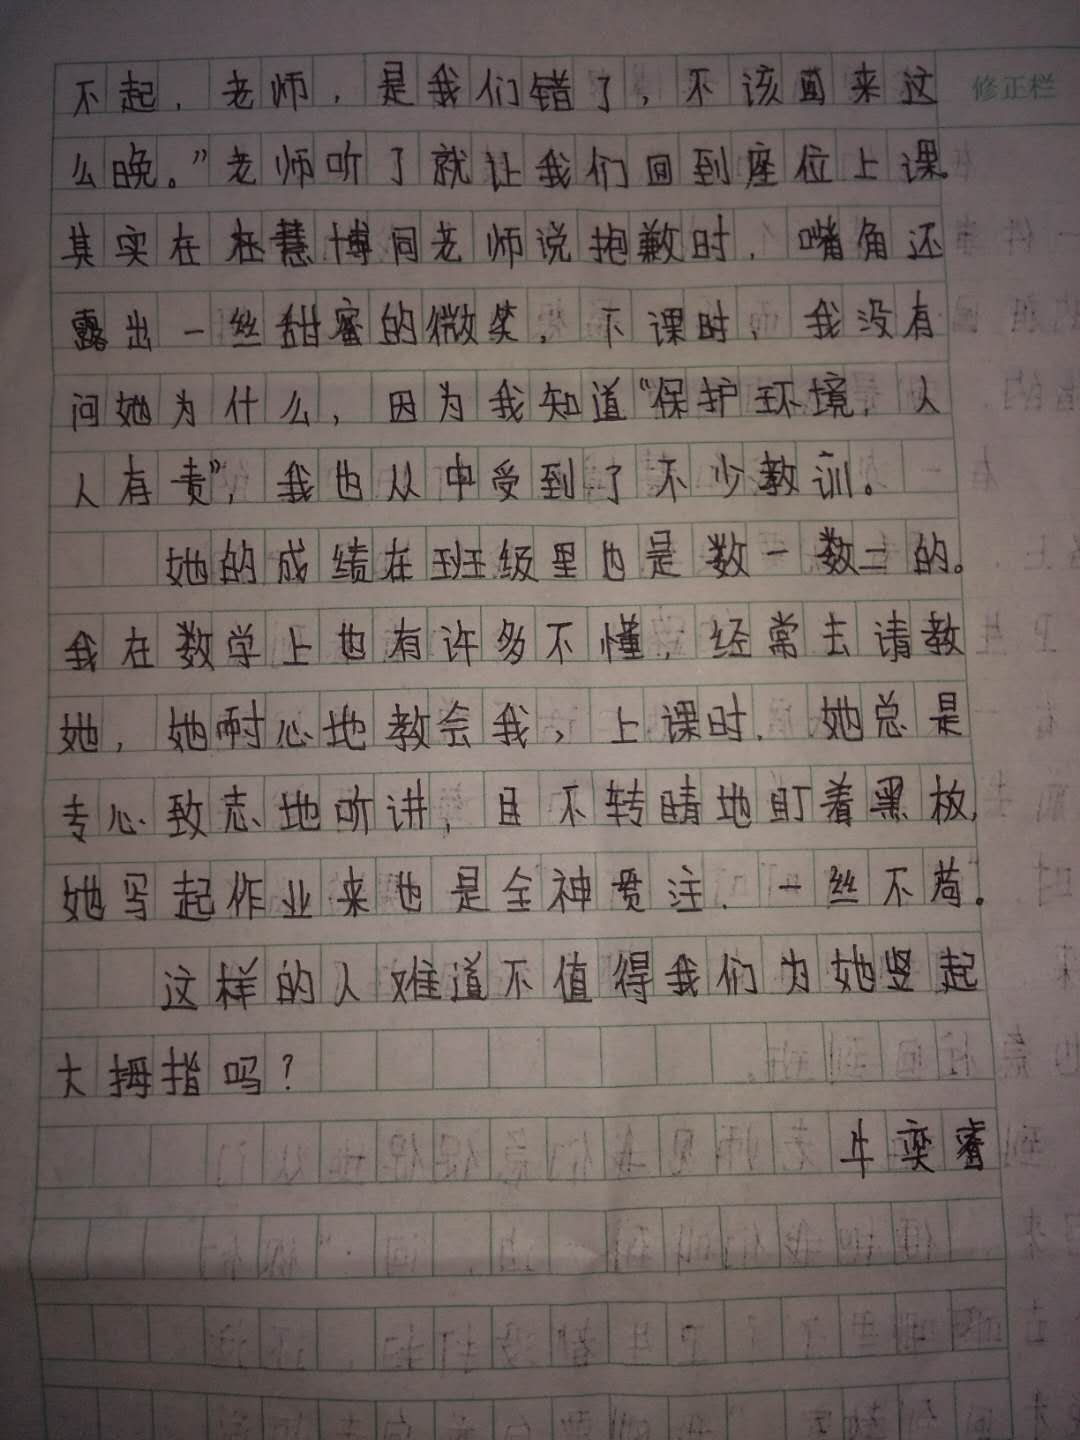 修正栏
不起，老师，是我们错了，不该回来这
么晚。”老师听了就让我们回到座位上课。
其实在杜慧博向老师说抱歉时，嘴角还
露出一丝甜蜜的微笑，下课时，我没有
问她为什么，因为我知道“保护环境，人
人有责”，我也从中受到了不少教训。
她的成绩在班级里也是数一数二的。
我在数学上也有许多不懂，经常去请教
她，她耐心地教会我，上课时，她总是
专心致志地听讲，目不转睛地盯着黑板，
她写起作业来也是全神贯注，一丝不苟。
这样的人难道不值得我们为她竖起
大拇指吗？
牛奕睿